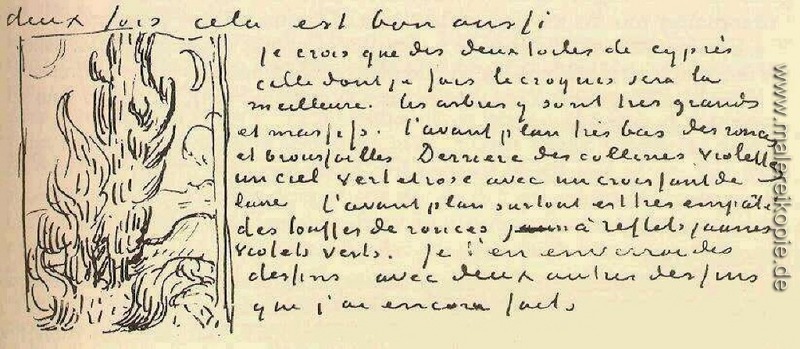 deux fois cela est bon aussi
Je crois que des deux toiles de cyprès
celle dont je fais le croquis sera la
meilleure. les arbres y sont très grands
et massifs. l'avant plan très bas des ronces
et broussailles Derrière des collines violettes
un ciel vert et rose avec un croissant de
lune L'avant plan surtout est très empâté
des touffes de ronces à reflets jaunes
violets verts. Je t'en enverrai des
dessins avec deux autres dessins
que j'ai encore faits
www.malereikopie.de